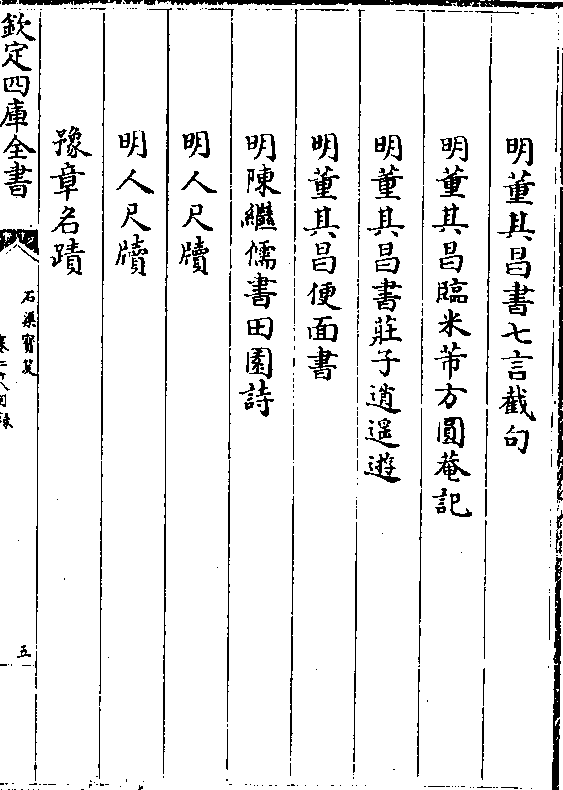 明董其昌書七言截句
明董其昌臨米芾方圓菴記
明董其昌書莊子逍遥遊
明董其昌便面書
明陳繼儒書田園詩
明人尺牘
明人尺牘
豫章名蹟
欽定四庫全書
石渠寳笈
五